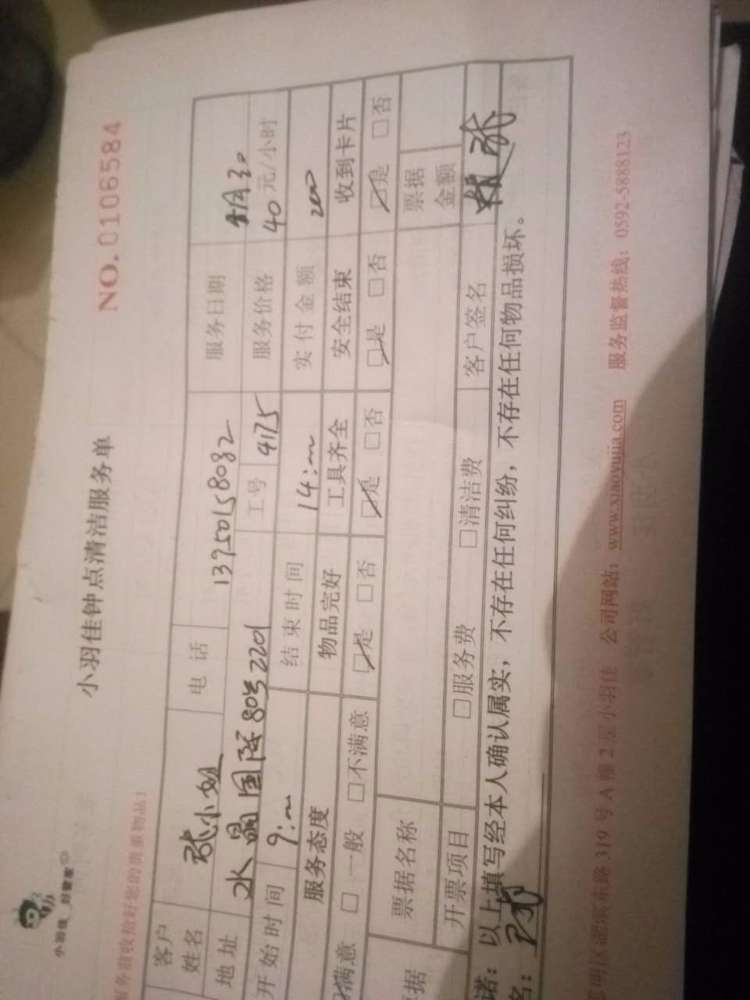 小羽佳 好管家
小羽佳钟点清洁服务单
NO.0106584
服务前收拾好您的贵重物品!
客户姓名 张小姐 电话 13950158032 服务日期 11月30
地址 水晶国际80号2201 工号 4175 服务价格 40元/小时
开始时间 9: 结束时间 14: 实付金额 200
服务态度 物品完好 工具齐全 安全结束 收到卡片
满意 □一般 □不满意 □是 □否 □是 □否 □是 □否 □是 □否
据 票据名称 票据金额
开票项目 □服务费 □清洁费 客户签名
诺:以上填写经本人确认属实,不存在任何纠纷,不存在任何物品损坏。
名:
明区湖滨东路319号A幢2层小羽佳 公司网站:www.xiaoyujia.com 服务监督热线:0592-5888123